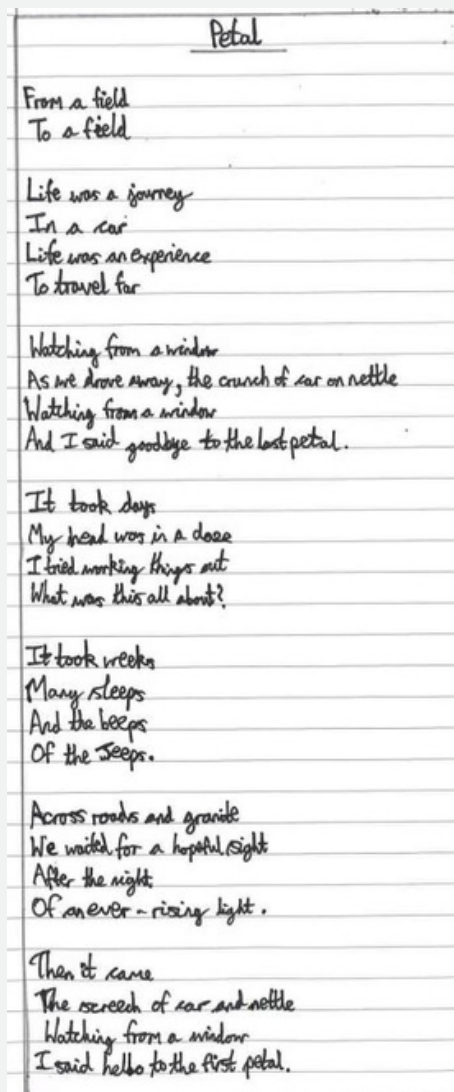 Petal
From a field
To a field
Life was a journey
In a car
Life was an experience
To travel far
Watching from a window
As we drove away, the crunch of car on nettle
Watching from a window
And I said goodbye to the last petal.
It took days
My head was in a daze
I tried working things out
What was this all about?
It took weeks
Many sleeps
And the beeps
Of the Jeeps.
Across roads and granite
We waited for a hopeful sight
After the night
Of an ever-rising light.
Then it came
The screech of car and nettle
Watching from a window
I said hello to the first petal.